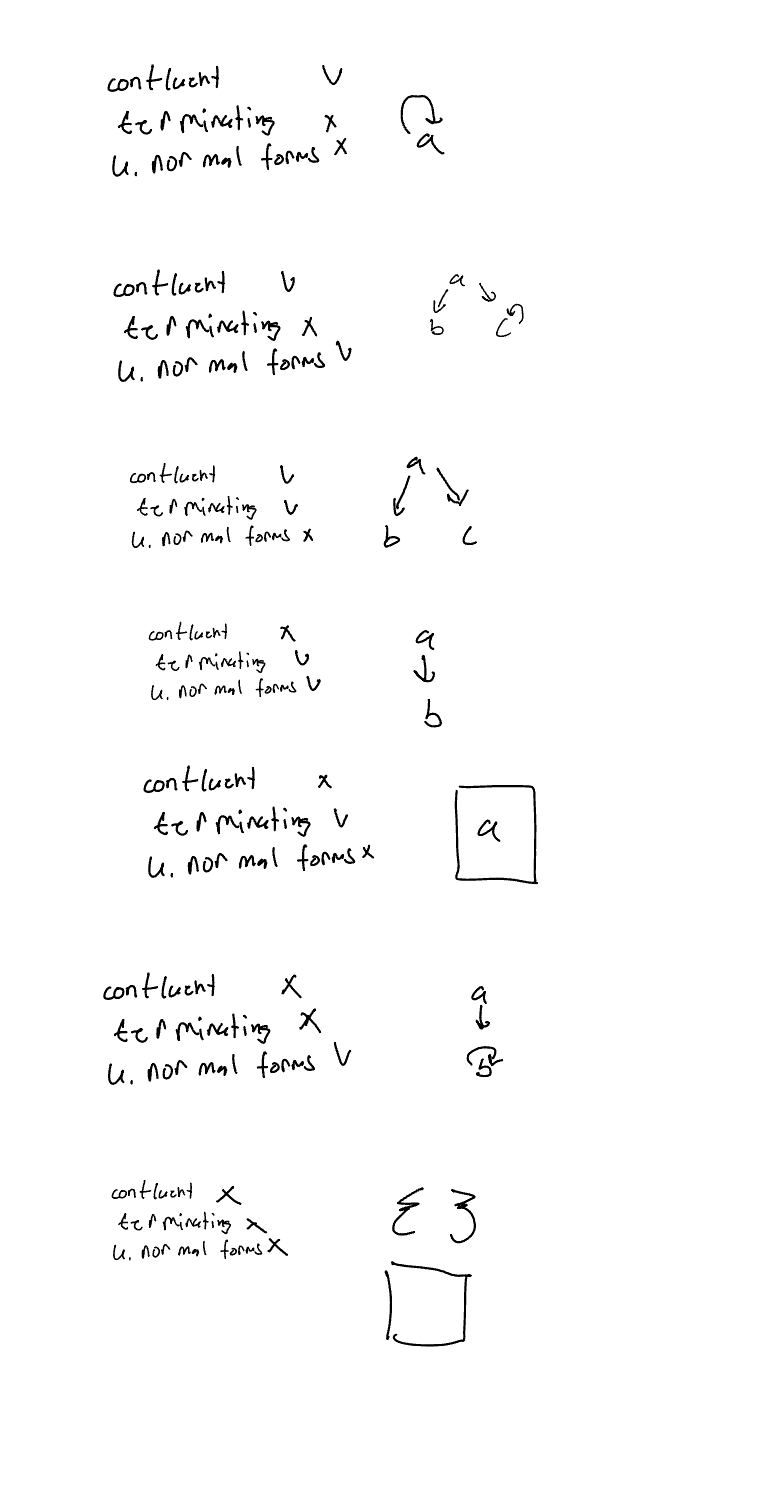 confluent V
terminating x
u. normal forms x
a
confluent V
terminating x
u. normal forms V
a
b c
confluent V
terminating V
u. normal forms x
a
b c
confluent x
terminating V
u. normal forms V
a
b
confluent x
terminating V
u. normal forms x
a
confluent x
terminating x
u. normal forms V
a
b
confluent x
terminating x
u. normal forms x
{ }